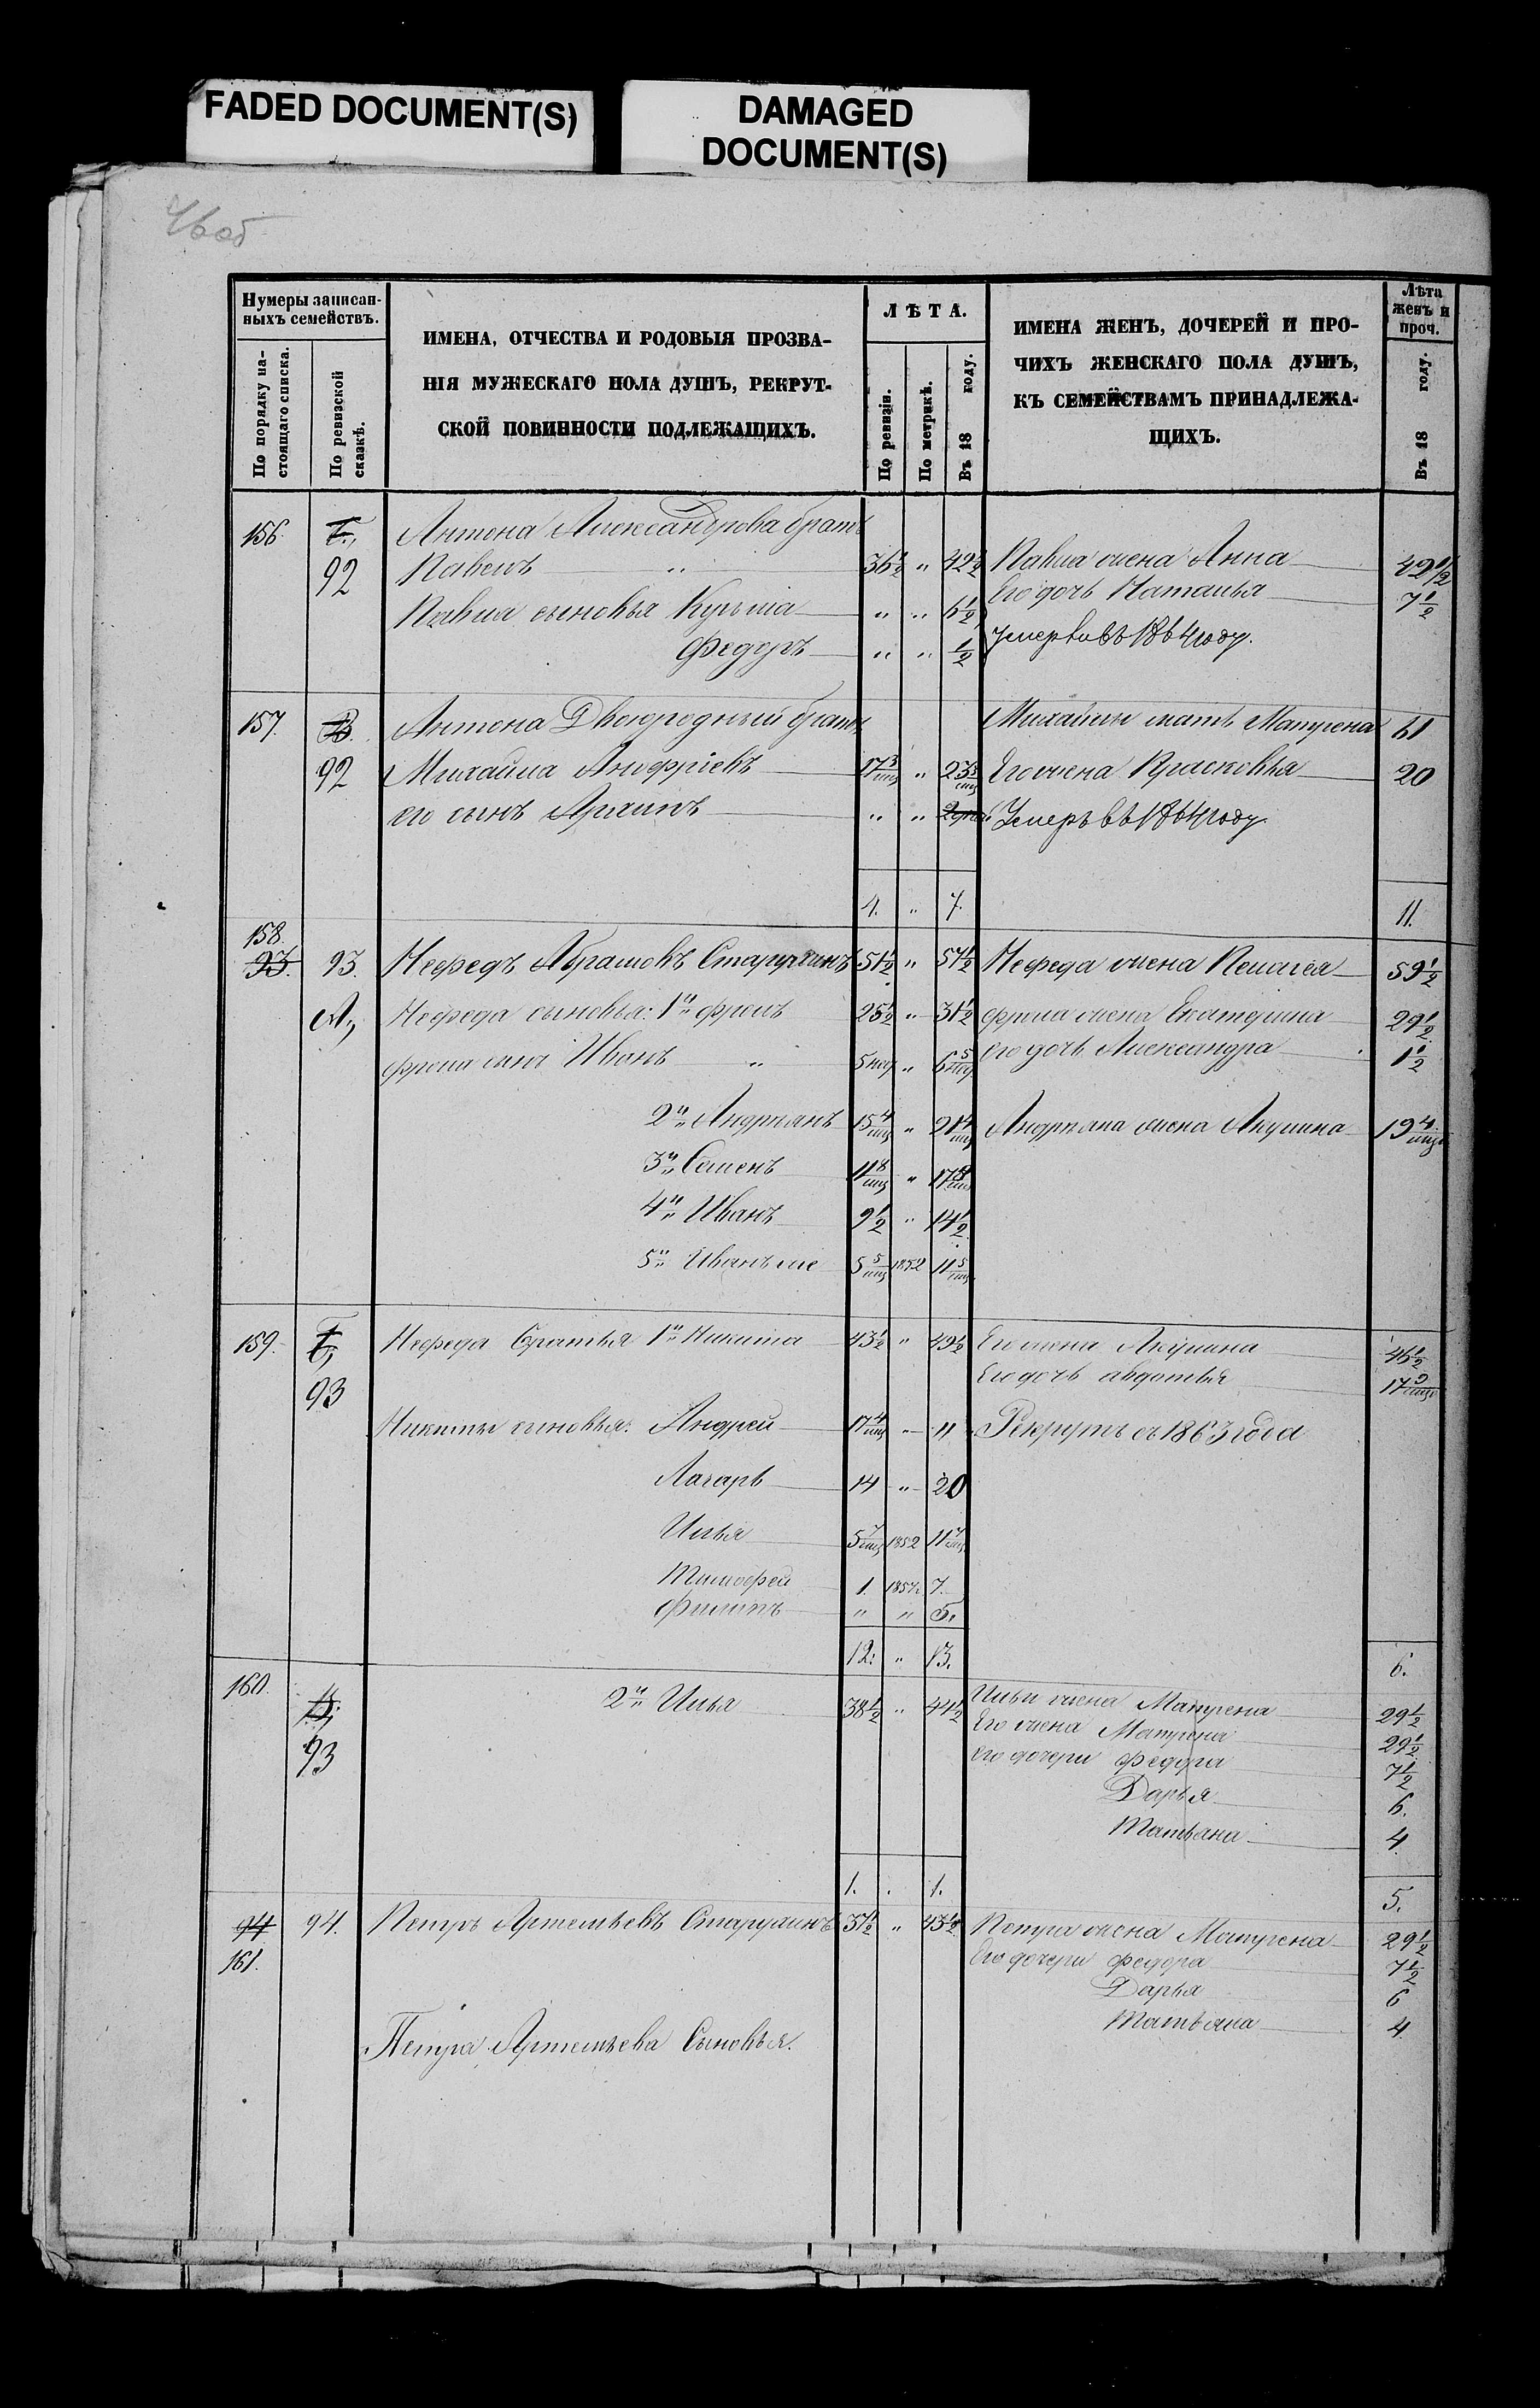 FADED DOCUMENT(S)
DAMAGED
DOCUMENT(S)
46 об
Нумеры записан-
ныхъ семействъ.
По порядку на-
стоящаго списка.
По ревизской
сказкѣ.
ИМЕНА, ОТЧЕСТВА И РОДОВЫЯ ПРОЗВА-
НІЯ МУЖЕСКАГО ПОЛА ДУШЪ, РЕКРУТ-
СКОЙ ПОВИННОСТИ ПОДЛЕЖАЩИХЪ.
ЛѢТА.
По ревизіи.
По метрикѣ.
Въ 18 году.
ИМЕНА ЖЕНЪ, ДОЧЕРЕЙ И ПРО-
ЧИХЪ ЖЕНСКАГО ПОЛА ДУШЪ,
КЪ СЕМЕЙСТВАМЪ ПРИНАДЛЕЖА-
ЩИХЪ.
Лѣта
женъ и
проч.
Въ 18 году.
156. Антона Александрова братъ
92 Павелъ " 36½ " 42½ Павла жена Анна 42½
его дочь Наталья 7½
Павла сыновья Кузьма " " 6½
Федоръ " " ½ Умерли въ 1864 году.
157. Антона Двоюродный братъ Михайлы мать Матрена 61
92 Михайла Ануфріевъ 17 3/мц " 23 3/мц Его жена Прасковья 20
его сынъ " " Умеръ въ 1864 году
4. " 7. 11.
158.
93. 93. Нефедъ Абрамовъ Старухинъ 51½ " 57½ Нефеда жена Пелагея 59½
А, Нефеда сыновья: 1й Фролъ 25½ " 31½ Фрола жена Екатерина 29½
Фрола сынъ Иванъ " 5 нед " 6 5/нед его дочь Александра 1½
2й Андрианъ 15 4/мц " 21 4/мц Андриана жена Акулина 19 4/мца
3й Семенъ 11 8/мц " 17 8/мц
4й Иванъ 9½ " 14½
5й Иванъ же 5 5/мц 1852 11 5/мц
159. Нефеда братья 1й Никита 43½ " 49½ Его жена Акулина 46½
93 Его дочь авдотья 17 9/мце
Никиты сыновья: Андрей 17 4/мц " " Рекрутъ съ 1863 года
Лазарь 14 " 20
Илья 5 7/мц 1852 11 7/мц
Тимофей 1. 1857 7.
Филипъ " " 5.
12. " 13. 6.
160. 2й Илья 38½ " 44½ Ильи жена Матрена 29½
93 Его жена Матрена 29½
его дочери Федора 7½
Дарья 6.
Татьяна 4.
1. . 1. 5.
94 94. Петръ Артемьевъ Старухинъ 37½ " 43½ Петра жена Матрена 29½
161. Его дочери Федора 7½
Дарья 6
Татьяна 4
Петра Артемьева Сыновья.